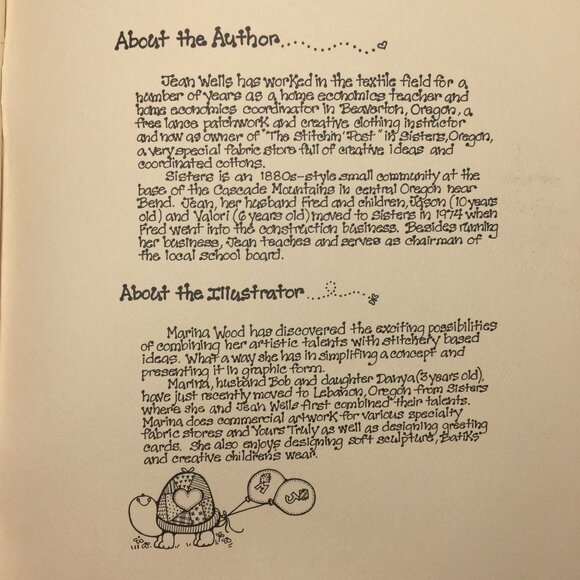 About the Author
Jean Wells has worked in the textile field for a
number of years as a home economics teacher and
home economics coordinator in Beaverton, Oregon, a
free lance patchwork and creative clothing instructor
and now as owner of "The Stitchin' Post" in Sisters, Oregon,
a very special fabric store full of creative ideas and
coordinated cottons.
Sisters is an 1880s-style small community at the
base of the Cascade Mountains in central Oregon near
Bend. Jean, her husband Fred and children, Jason (10 years
old) and Valori (6 years old) moved to Sisters in 1974 when
Fred went into the construction business. Besides running
her business, Jean teaches and serves as chairman of
the local school board.
About the Illustrator
Marina Wood has discovered the exciting possibilities
of combining her artistic talents with stitchery based
ideas. What a way she has in simplifing a concept and
presenting it in graphic form.
Marina, husband Bob and daughter Danya (3 years old),
have just recently moved to Lebanon, Oregon from Sisters
where she and Jean Wells first combined their talents.
Marina does commercial artwork for various specialty
fabric stores and Yours Truly as well as designing greeting
cards. She also enjoys designing soft sculpture, Batiks
and creative childrens wear.